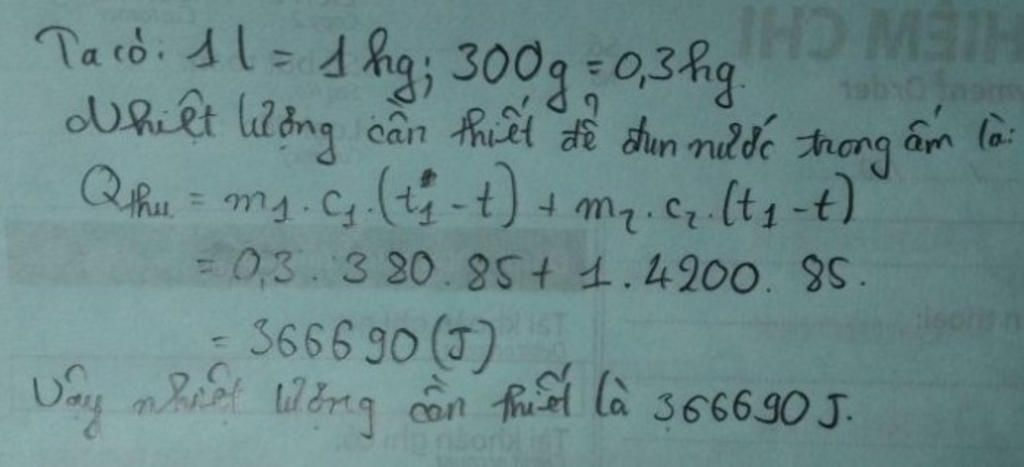 Ta có: 1 l = 1 kg; 300g = 0,3kg.
Nhiệt lượng cần thiết để đun nước trong ấm là:
Qthu = m1 . c1 . (t1 - t) + m2 . c2 . (t1 - t)
= 0,3 . 380 . 85 + 1 . 4200 . 85.
= 366690 (J)
Vậy nhiệt lượng cần thiết là 366690 J.